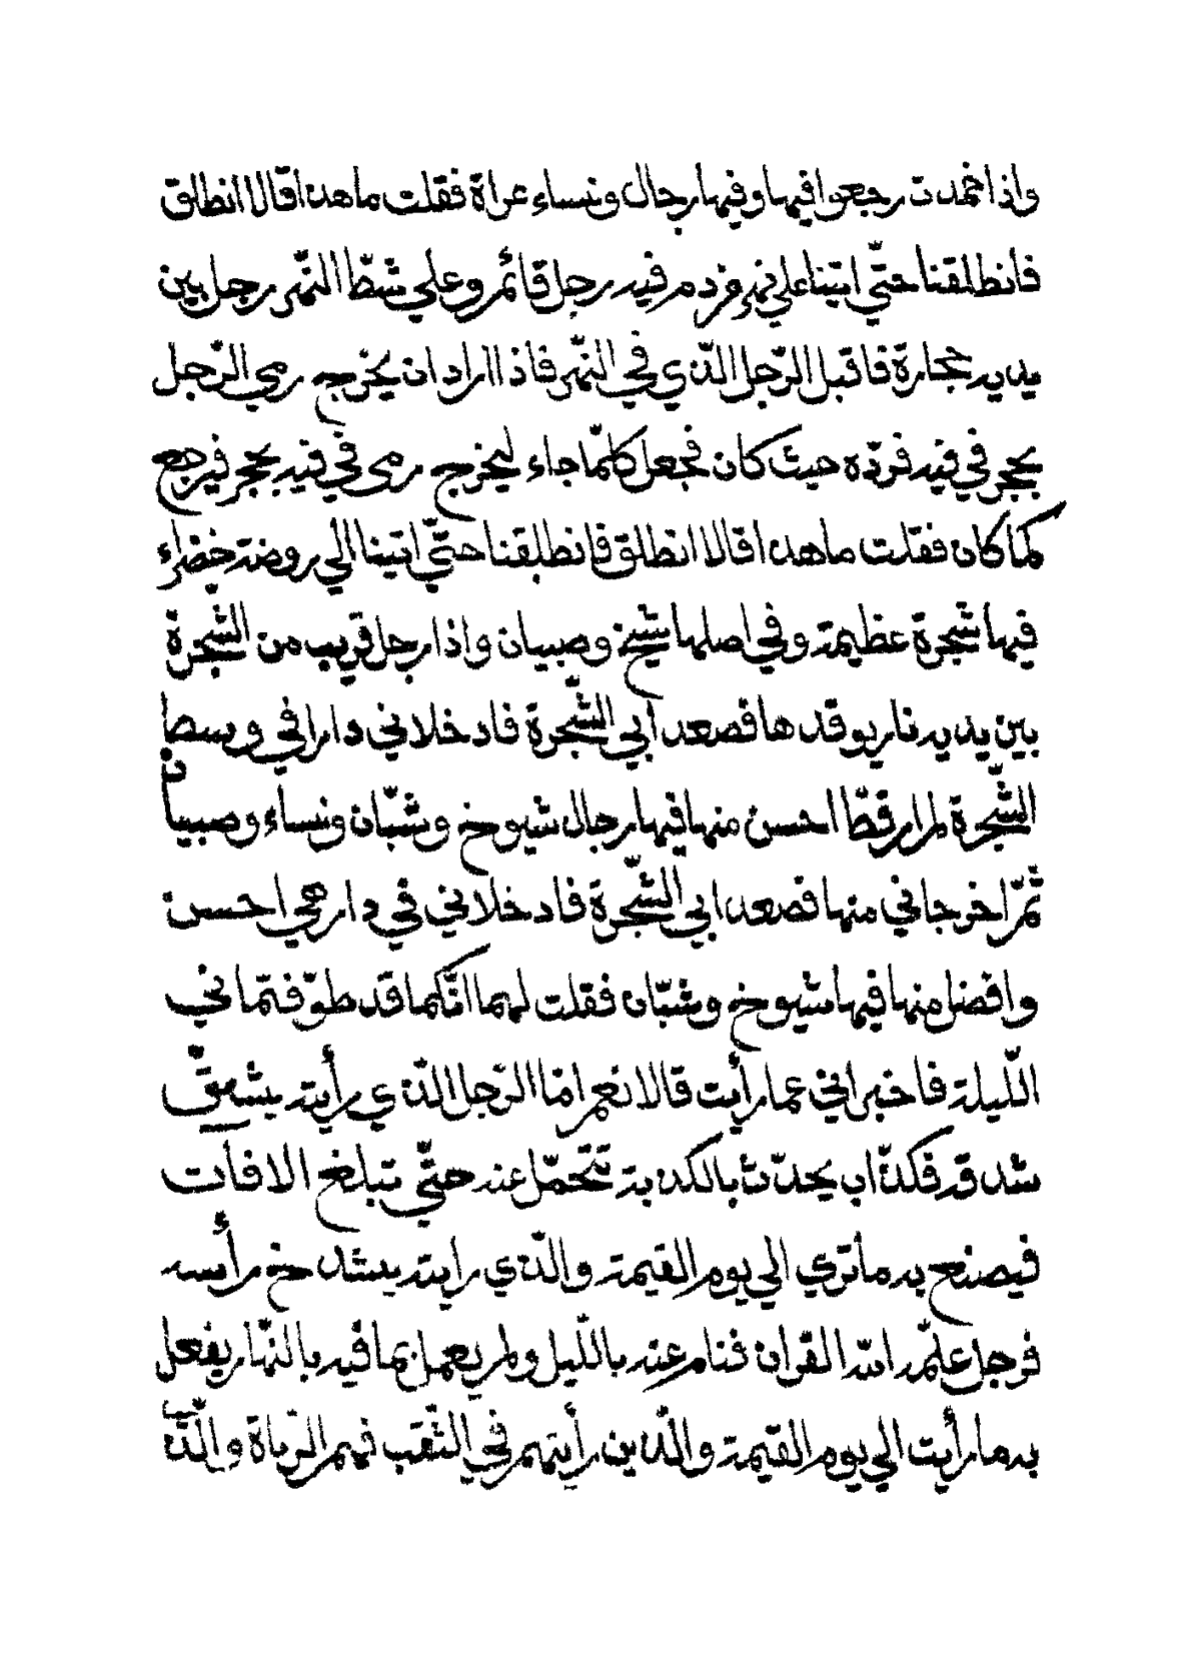 واذا خمدت رجعوا فيها وفيها رجال ونساء عراة فقلت ما هذا قالا انطلق
فانطلقنا حتّي اتينا علي نهر من دم فيه رجل قائم وعلي شطّ النّهر رجل بين
يديه حجارة فاقبل الرّجل الّذي في النّهر فاذا اراد ان يخرج رمي الرّجل
بحجر في فيه فردّه حيث كان فجعل كلّما جاء ليخرج رمى في فيه بحجر فيرجع
كما كان فقلت ما هذا قالا انطلق فانطلقنا حتّي اتينا الي روضة خضراء
فيها شجرة عظيمة وفي اصلها شيخ وصبيان واذا رجل قريب من الشّجرة
بين يديه نار يوقدها فصعدا بي الشّجرة فادخلاني دارا في وسط
الشّجرة لم ار قطّ احسن منها فيها رجال شيوخ وشبّان ونساء وصبيان
ثمّ اخرجاني منها فصعدا بي الشّجرة فادخلاني في دار هي احسن
وافضل منها فيها شيوخ وشبّان فقلت لهما انّكما قد طوّفتماني
اللّيلة فاخبراني عما رأيت قالا نعم امّا الرّجل الّذي رأيته يشقّ
شدقه فكذّاب يحدّث بالكذبة تتحمّل عنه حتّي تبلغ الافاق
فيصنع به ما تري الي يوم القيمة والّذي رايته يشدخ رأسه
فرجل علّمه الله القران فنام عنه باللّيل ولم يعمل بما فيه بالنّهار يفعل
به ما رأيت الي يوم القيمة والّذين رأيتهم في الثّقب فهم الزّناة والّذي